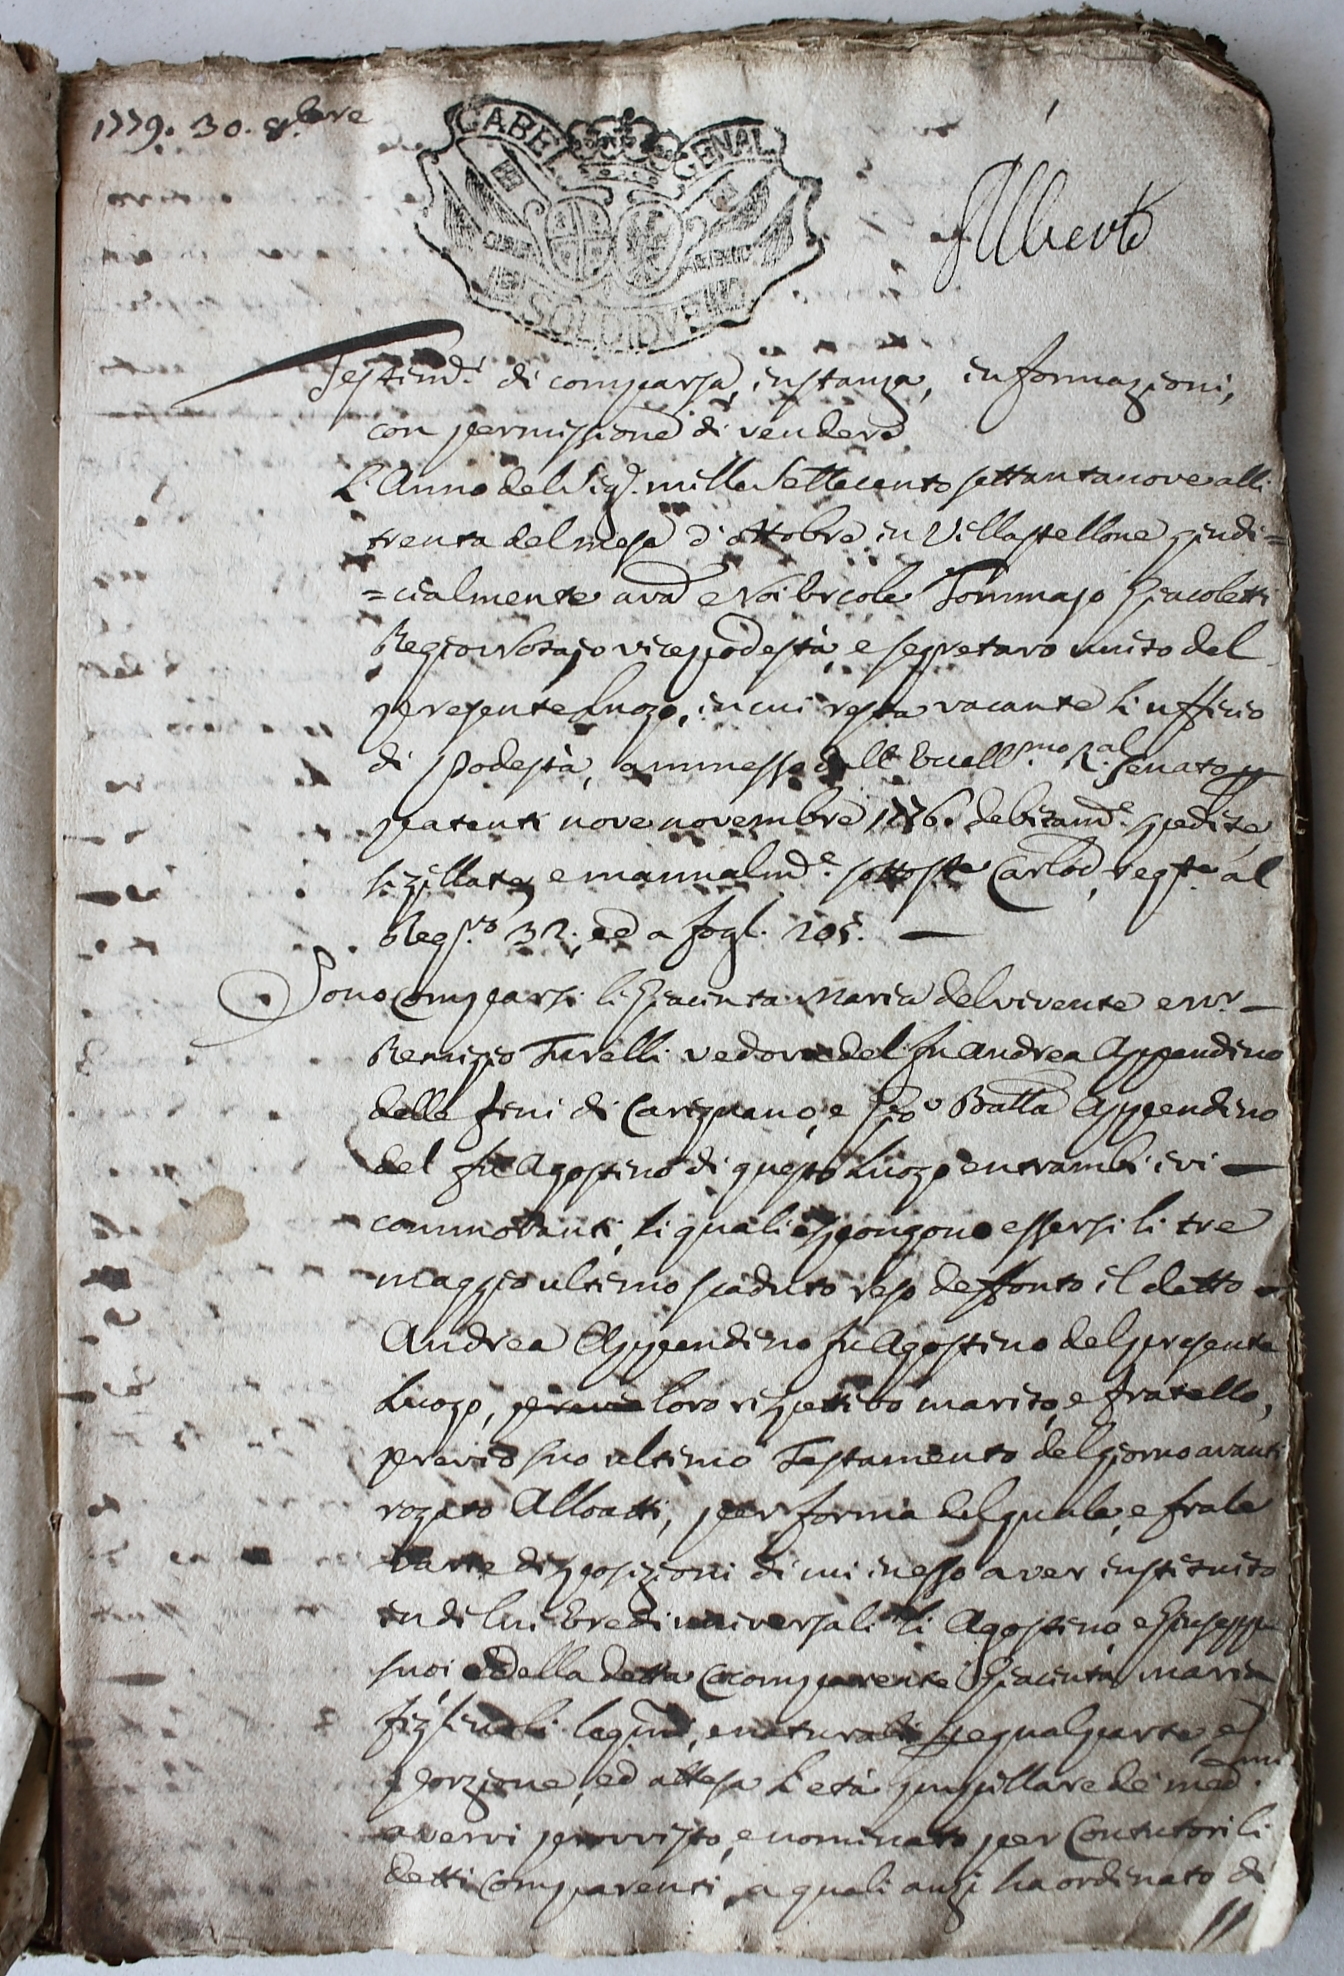 1779. 30. 8.bre
GABEL GENAL
SOLDI DVE
Alberto
Testim.le di comparsa, instanza, informazioni,
con permissione di vendere
L'Anno del Sig.r mille settecento settantanove alli
trenta del mese d'ottobre in Villastellone giudi=
=cialmente avanti Noi Ercole Tommaso Giacoletti
Regio Notajo vicepodestà, e segretaro unito del
presente luogo, in cui resta vacante l'uffizio
di Podestà, ammesso dall'Eccell.mo R.al Senato p
patenti nove novembre 1776. debitam.e spedite,
sigillate, e manualm.e sottoste Carlod, regte al
Reg.ro 32. ed a fogl. 205.
Sono comparsi li Giacinta Maria del vivente
Remigio Turelli vedova del fu Andrea Appendino
delle fini di Carignano, e Gio Batta Appendino
del fu Agostino di questo Luogo entrambi ivi
commoranti, li quali espongono essersi li tre
maggio ultimo scaduto reso deffonto il detto
Andrea Appendino fu Agostino del presente
Luogo, loro rispettivo marito, e fratello,
previo suo ultimo Testamento del giorno avanti
rogato Alloatti, per forma del quale, e fra le
varie disposizioni di cui in esso aver instituito
in di lui Eredi universali li Agostino, e Giuseppe
suoi e della detta Cocomparente Giacinta Maria
figliuoli legmi, e naturali p egual parte e
porzione, ed attesa l'età pupillare de' med.mi
avervi provvisto, e nominato per Contutori li
detti Comparenti, a quali anzi ha ordinato di